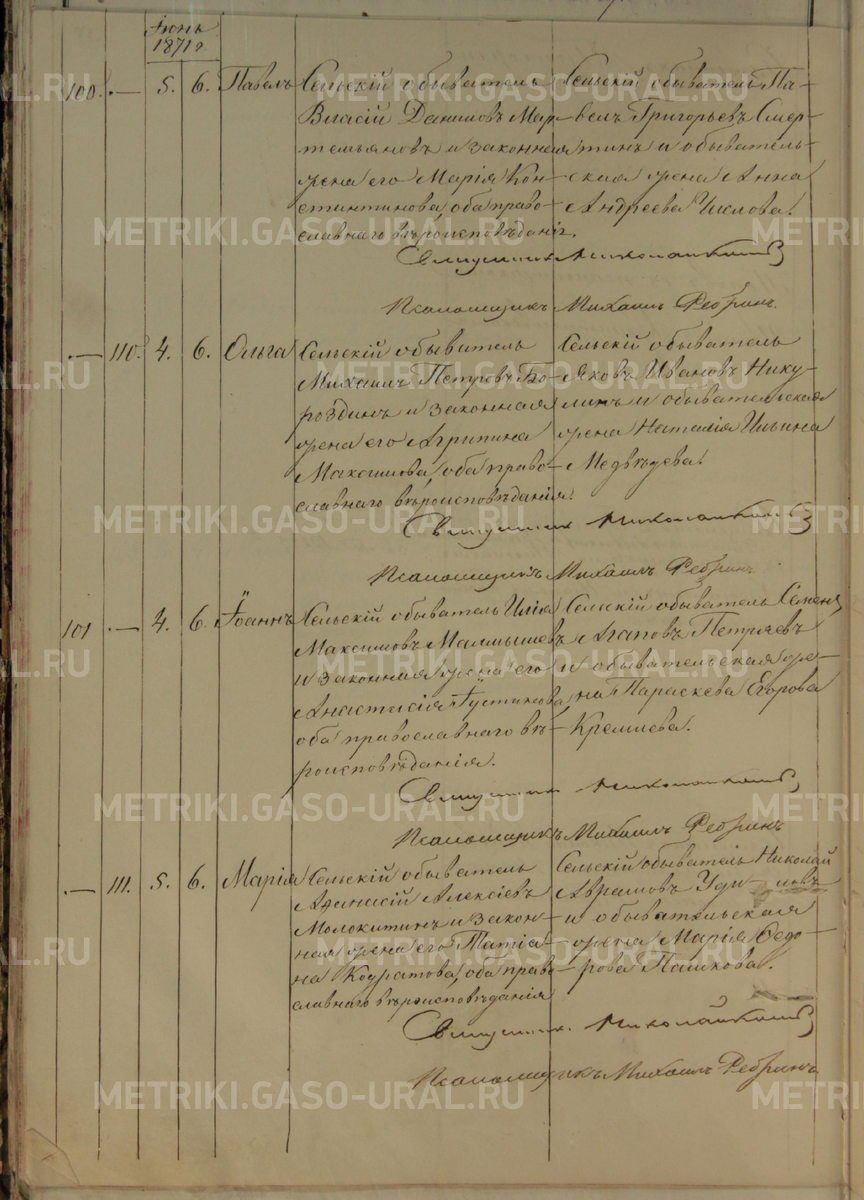 Іюнь
1871 г
100. — 5. 6. Павелъ
Сельскій обыватель
Власій Даниловъ Мар-
темьяновъ и законная
жена его Марія Кон-
стантинова, оба право-
славнаго вѣроисповѣданія.
Сельскій обыватель Па-
велъ Григорьевъ Смер-
тинъ и обыватель-
ская жена Анна
Андреева
Священник
Псаломщикъ Михаилъ Ребринъ.
— 110. 4. 6. Ольга
Сельскій обыватель
Михаилъ Петровъ Бо-
роздинъ и законная
жена его Агрипина
Максимова, оба право-
славнаго вѣроисповѣданія.
Сельскій обыватель
Яковъ Ивановъ Нику-
линъ и обывательская
жена Наталія Ильина
Медвѣдева.
Священник
Псаломщикъ Михаилъ Ребринъ
101 — 4. 6. Іоаннъ
Сельскій обыватель Илія
Максимовъ Малмышев
и законная жена его
Анастасія Іустинова,
оба православнаго вѣ-
роисповѣданія.
Сельскій обыватель Семенъ
Агаповъ Петряевъ
и обывательская же-
на Параскева Егорова
Кремлева.
Священник
Псаломщикъ Михаилъ Ребринъ
— 111. 5. 6. Марія
Сельскій обыватель
Афанасій Алексіевъ
Молокитинъ и закон-
ная жена его Татіа-
на Кодратова, оба право-
славнаго вѣроисповѣданія
Сельскій обыватель Николай
Аврамовъ
и обывательская
жена Марія Ѳедо-
рова Пашкова.
Священник
Псаломщикъ Михаилъ Ребринъ
METRIKI.GASO-URAL.RU